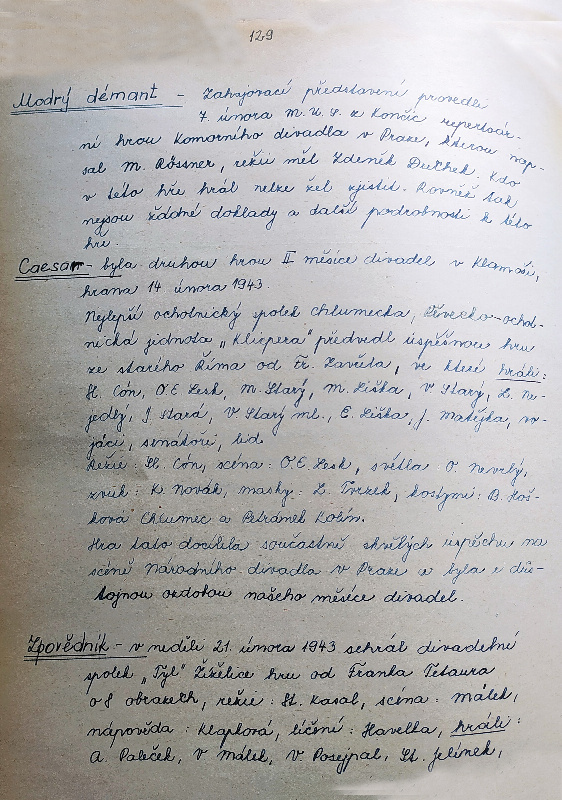 129
Modrý démant - Zahajovací představení provedli
7. února M.U.S. z Končic repertoár-
ní hrou Komorního divadla v Praze, kterou nap-
sal M. Rössner, režii měl Zdeněk Duthek. Kdo
v této hře hrál nelze žel zjistit. Rovněž tak
nejsou žádné doklady a další podrobnosti k této
hře.
Caesar - byla druhou hrou II měsíce divadel v Klamoši,
hrana 14 února 1943.
Nejlepší ochotnický spolek chlumecka, Pěvecko-ochot-
nická jednota „Klicpera" předvedl úspěšnou hru
ze starého Říma od Fr. Zavřela, ve které hráli:
St. Cón, O.E. Lesk, M. Starý, M. Liška, V. Starý, L. Ne-
jedlý, J. Stará, V Starý ml., E. Liška, J. Matějka, vo-
jáci, senátoři, lid.
Režie: St. Cón, scéna: O.E. Lesk, světla O. Nevrlý,
zvuk: K. Novák, masky: L. Tvrzek, kostymi: B. Hoš-
ková Chlumec a Petránek Kolín.
Hra tato docílila součastně skvělých úspěchu na
scéně Národního divadla v Praze a byla i důs-
tojnou ozdobou našeho měsíce divadel.
Zpovědník - v neděli 21. února 1943 sehrál divadelní
spolek „Tyl" Žiželice hru od Franka Tetaura
o 8 obrazech, režie: St. Kasal, scéna: Málek,
nápověda: Klapková, líčení: Havelka, hráli:
A. Paleček, V Málek, V. Posejpal, St. Jelínek,